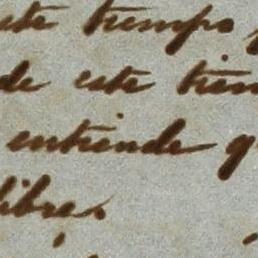 este tiempo
de este tiem
entiende q
libres